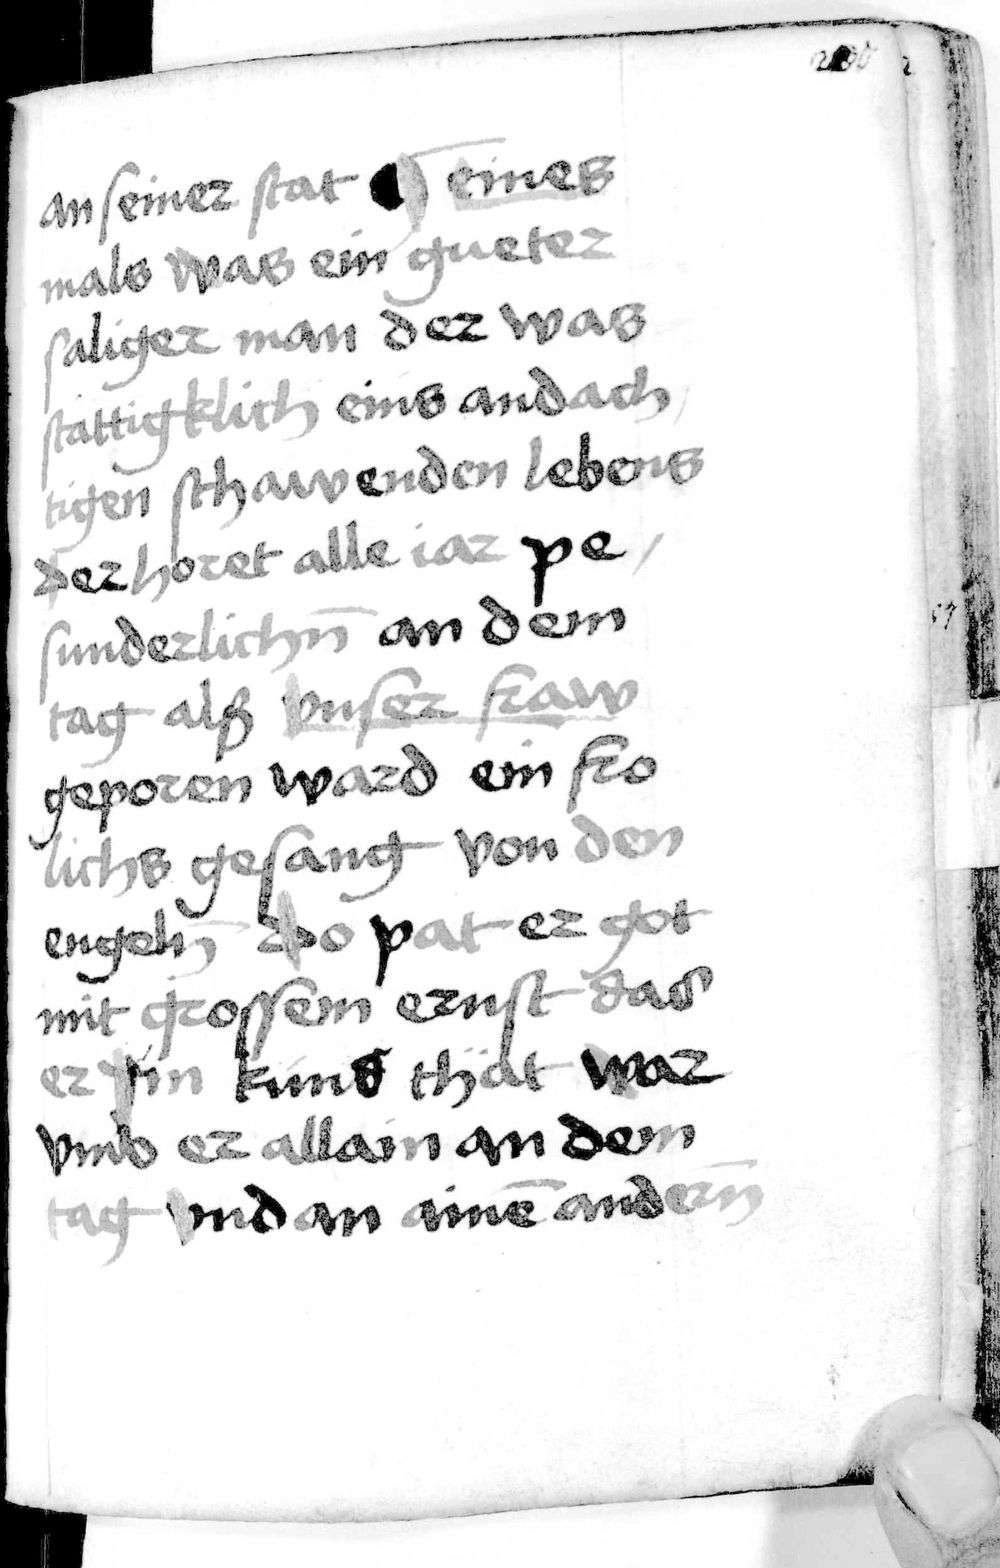 an seiner stat ¶ eines
mals was ein gueter
saliger man der was
stättigklich eins andach
tigen schawenden lebens
der horet alle iar pe /
sunderlichn̄ an dem
tag alß vnser fraw
geporen ward ein fro
lichs gesang von den
engeln̄ do pat er got
mit grossem ernst das
er im kūns thät war
vmb er allain an dem
tag vnd an ainē andern̄